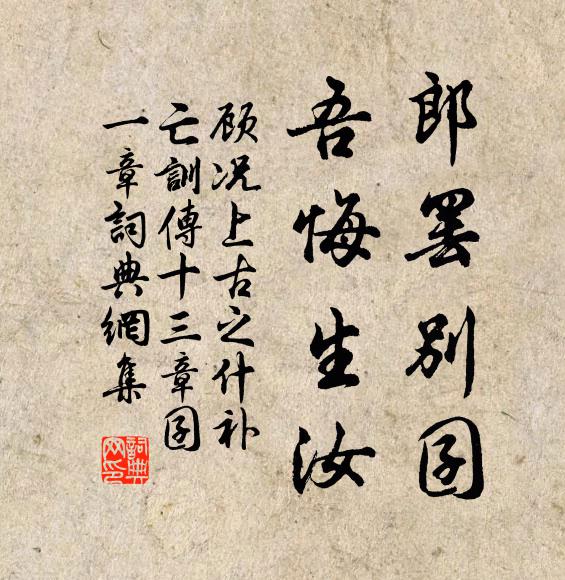 郎罢别囝
吾悔生汝
顾况上古之什补
亡訓傳十三章囝
一章詞典網集
詞典
网印